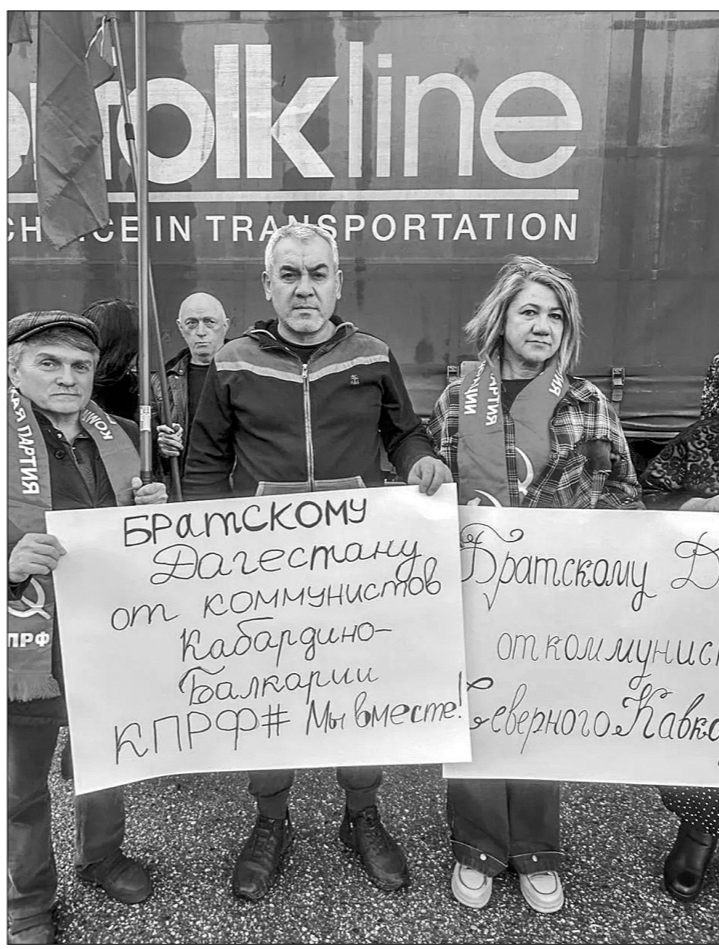 olkline
CHOICE IN TRANSPORTATION
КАЯ ПАРТИЯ
ПРФ
БРАТСКОМУ
Дагестану
от коммунистов
Кабардино-
Балкарии
КПРФ# Мы вместе!
Братскому Д
от коммунис
Северного Кавка